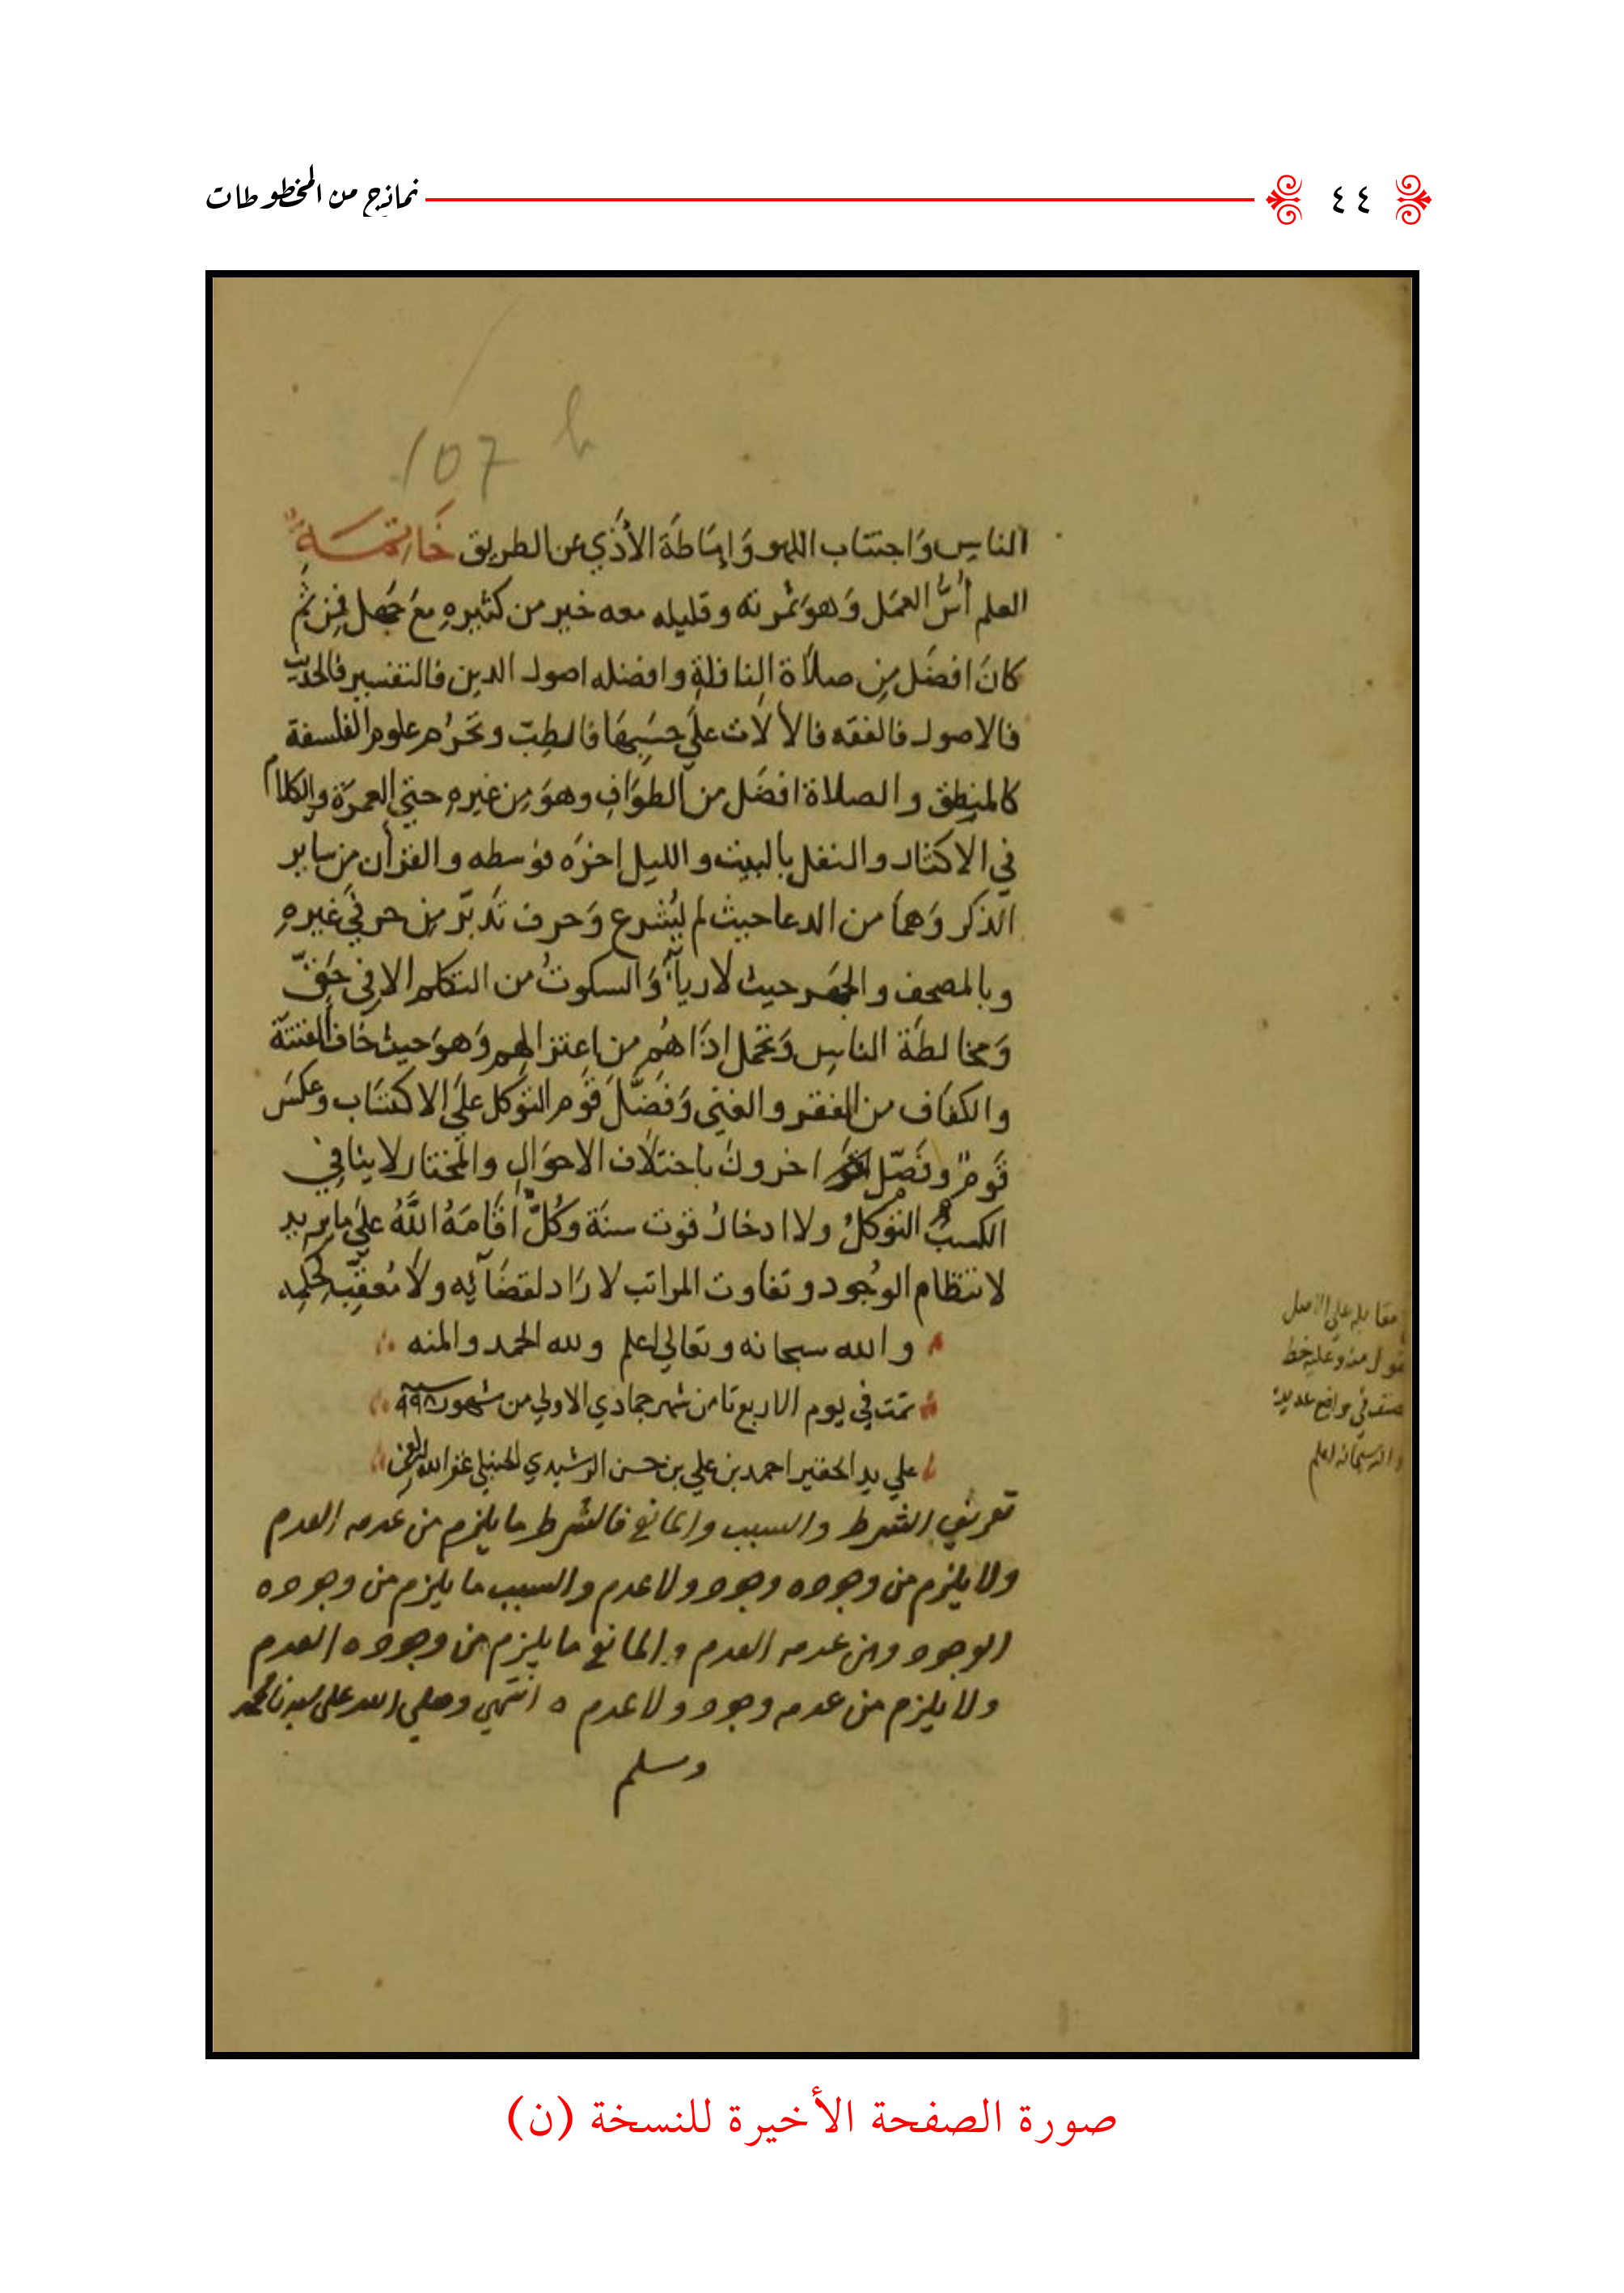 ٤٤ نماذج من المخطوطات
107 h
الناسِ وَاجتناب اللهو وَإِمَاطَةَ الأَذَي عن الطريق خَاتِمَـــةٌ
العلم أُسُّ العمَل وَهوَ ثمرته وقليله معه خير من كثيرهِ معَ جَهل فمِن ثَمَّ
كانَ افضَل مِن صلاَة النافلةِ وافضله اصول الدين فالتفسير فالحديث
فالاصول فالفقه فالألاَت علَي حَسَبِهَا فالطِبّ وتحَرُم علوم الفلسفة
كالمنطِق والصلاة افضَل من الطوَافِ وهوَ مِن غيرهِ حتي العمرَة والكلام
في الاكثار والنفل بالبيت والليل اخرَه فوَسطه والقرأن مِن ساير
الذكر وَهمَا من الدعا حيث لم يُشرع وَحرف تَدَبّرٍ مِن حرفي غيرهِ
وبالمصحف والجهر حيث لا رياَءَ وَالسكوتُ من التكلم الا في حَقّ
وَمخالطَة الناسِ وَتحمل اذَاهُم من اعتزالهِم وَهوَ حيث خافَ الفتنَة
والكفاف من الفقر والغنَي وَفَضَّلَ قوَم التوَكل علَي الاكتسَاب وعكسَ
قَومٌ وفَصّل اخرونَ باختلاَف الاحوَالِ والمختار لا ينافي
الكسبُ التوَكلُ ولا ادخارُ قوت سنَة وَكُلٌّ اقَامَهُ اللَّهُ علَي ما يريد
لانتظام الوُجود وتفاوت المراتب لا رَادَ لقضَآيِه ولاَ مُعقِّبَ لحكمِه
والله سبحانه وتعالي اعلم ولله الحمد والمنه
تمت في يوم الاربع ثامن شهر جمادي الاولي من شهور سنة ٩٩٨
علي يد الحقير احمد بن علي بن حسن الرشيدي الحنبلي غفر الله
تعريف الشرط والسبب والمانع فالشرط ما يلزم من عدمه العدم
ولا يلزم من وجوده وجود ولا عدم والسبب ما يلزم من وجوده
الوجود ومن عدمه العدم والمانع ما يلزم من وجوده العدم
ولا يلزم من عدمه وجود ولا عدم ه انتهي وصلي الله علي سيدنا محمد
وسلم
مقابله علي الاصل
منه وعليه خط
في مواضع عديدة
والله سبحانه اعلم
صورة الصفحة الأخيرة للنسخة (ن)